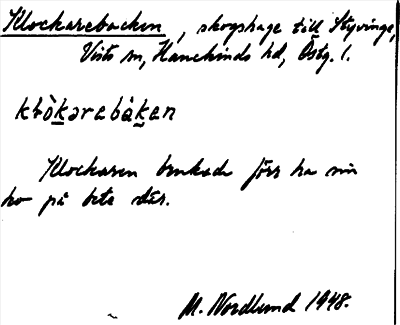 Klockarebacken, skogshage till Styvinge,
Vists sn, Hanekinds hd, Östg. l.
klòkarebàken
Klockaren brukade förr ha sin
ko på bete där.
M. Nordlund 1948.